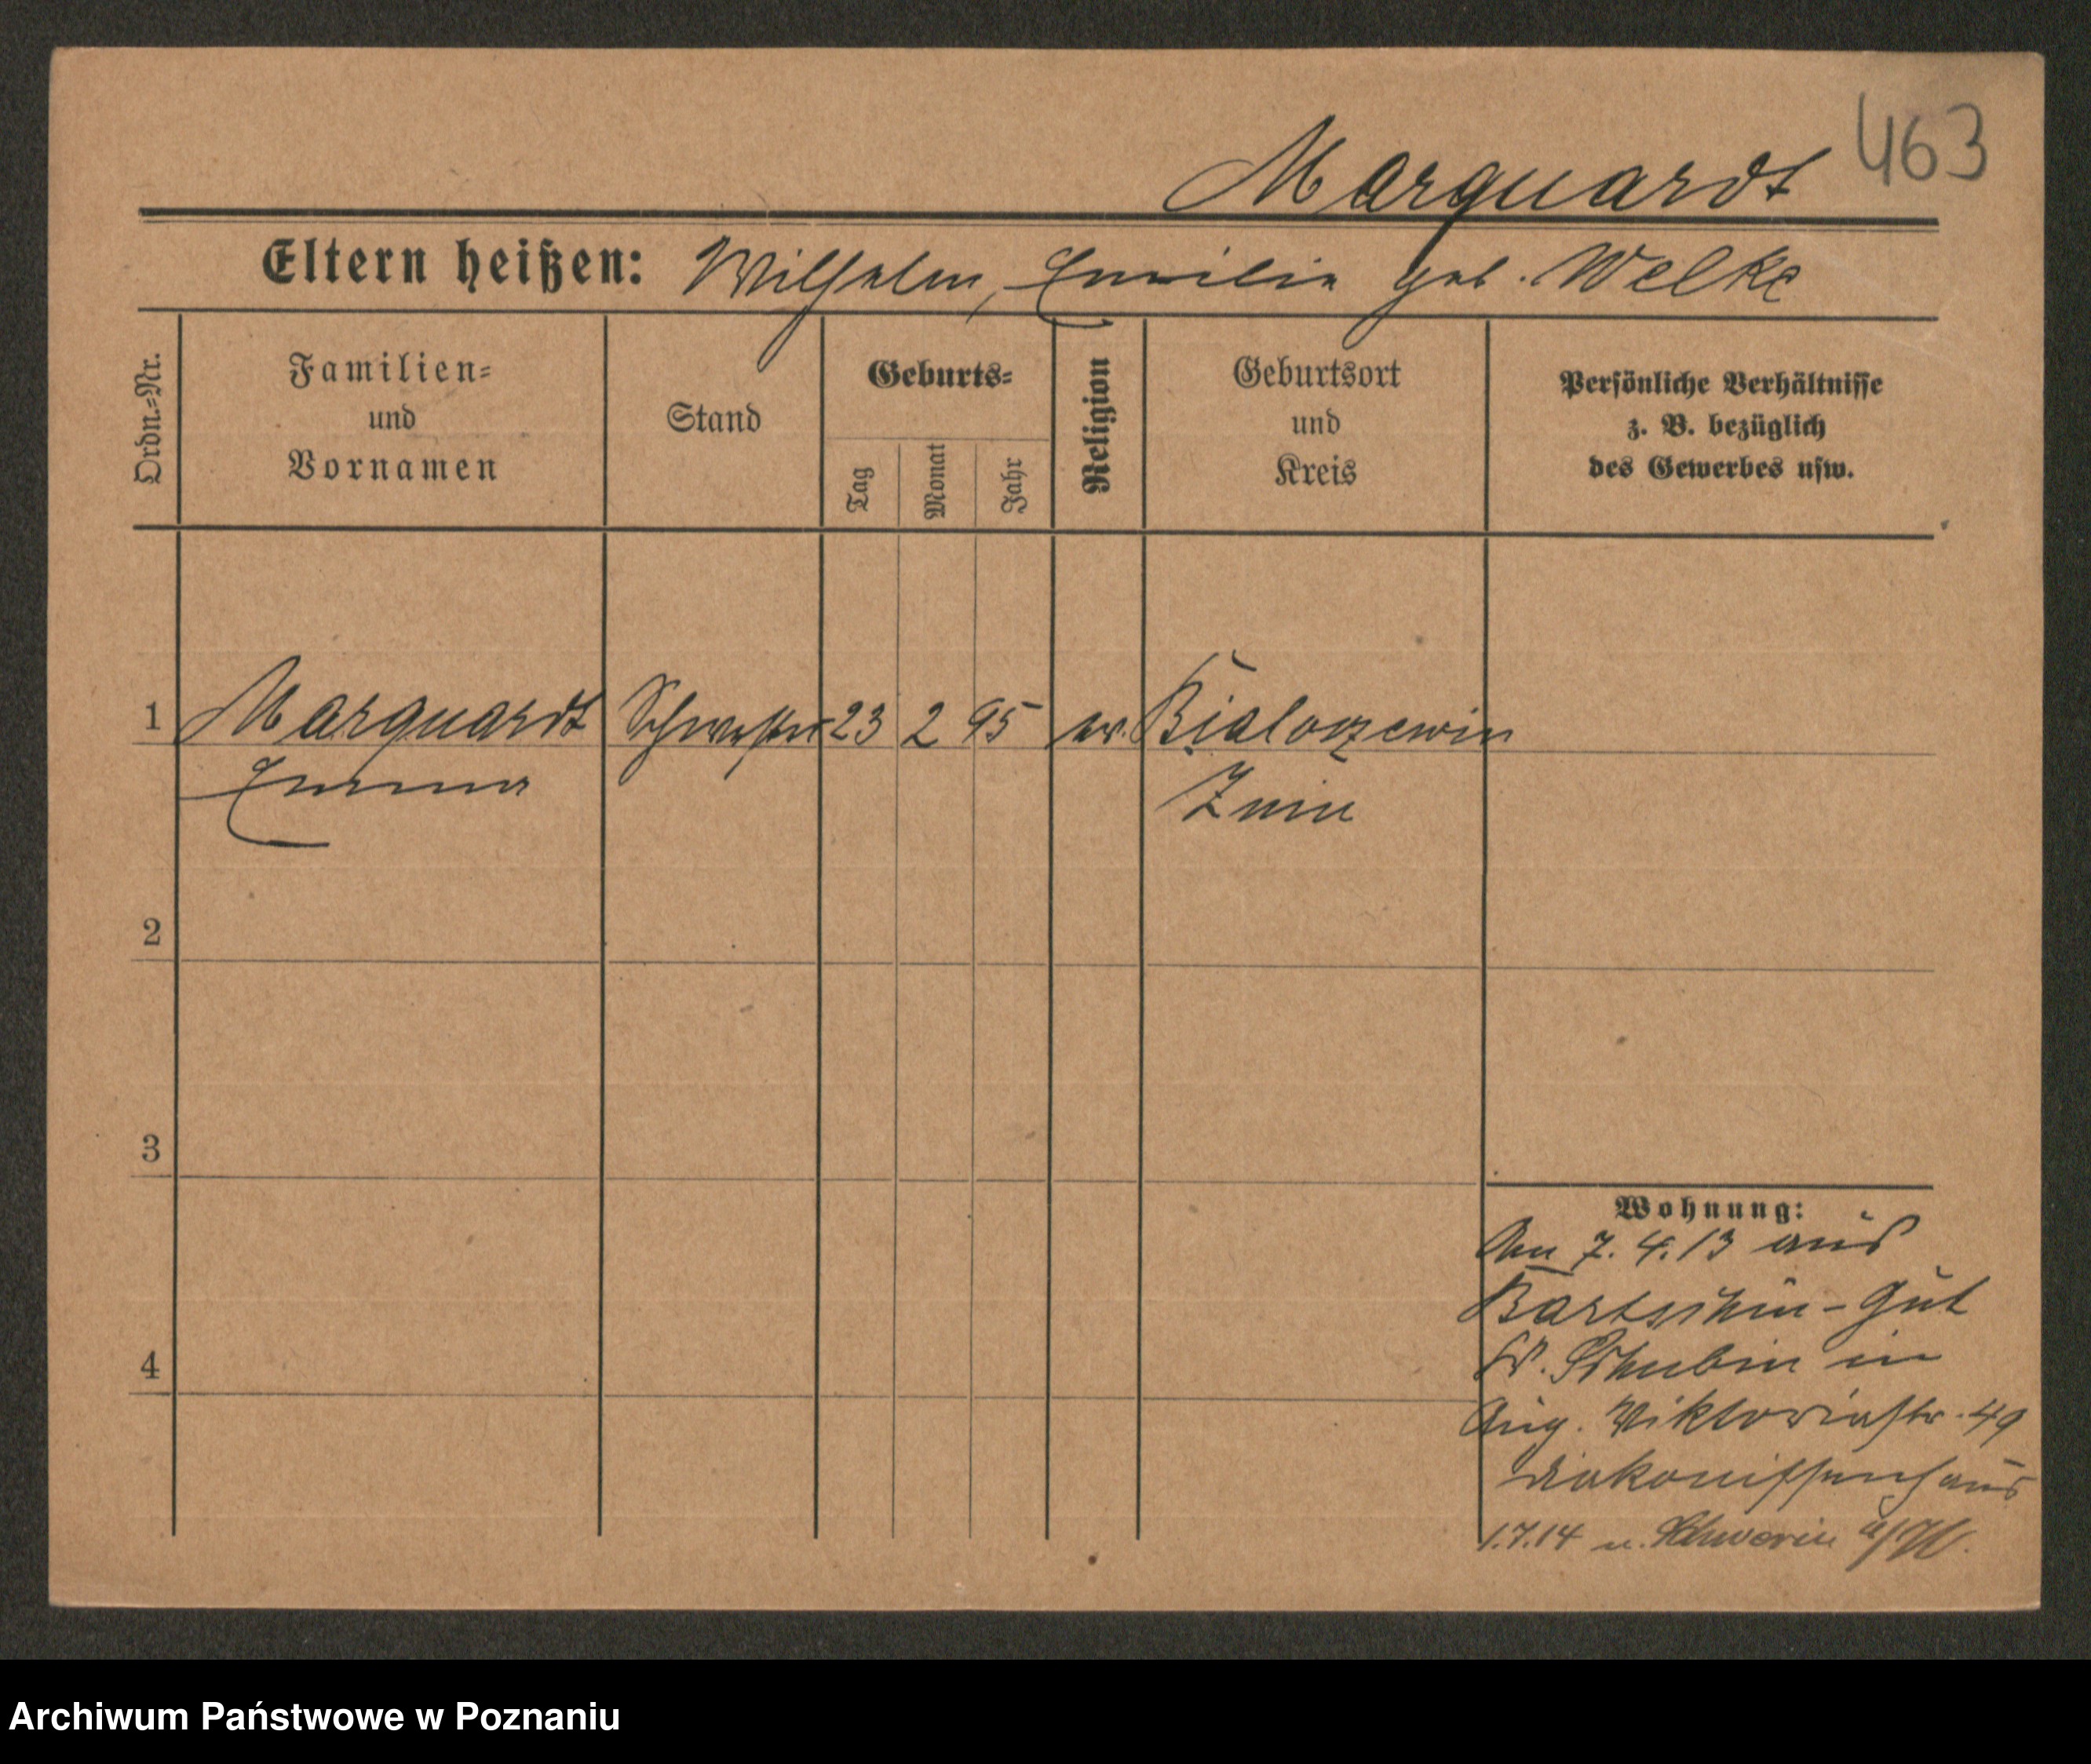 463
Marquardt
Eltern heißen: Wilhelm, Emilie geb. Welke
Ordn.=Nr.
Familien=
und
Vornamen
Stand
Geburts=
Tag
Monat
Jahr
Religion
Geburtsort
und
Kreis
Persönliche Verhältnisse
z. B. bezüglich
des Gewerbes usw.
1 Marquardt Schwester 23 2 95 ev. Bialozewin
Emma Znin
2
3
4
Wohnung:
Am 7. 4. 13 aus
Bartschin-Gut
Kr. Schubin in
Aug. Viktoriastr. 49
Diakonissenhaus
1.7.14 n. Schwerin a/W.
Archiwum Państwowe w Poznaniu